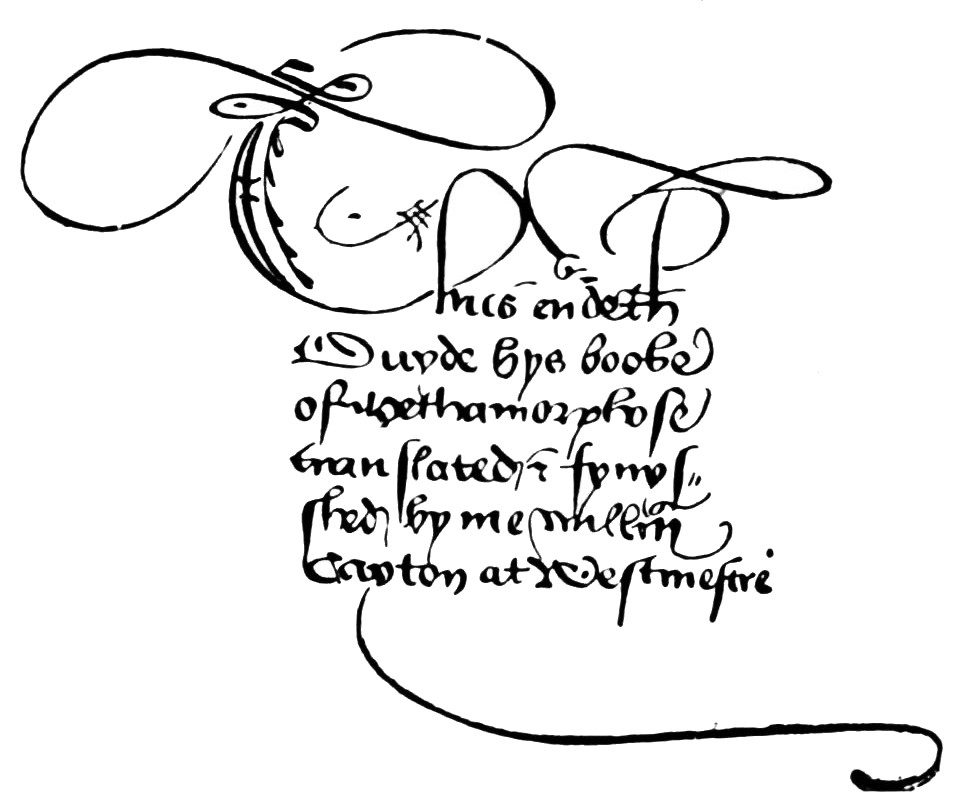 Thus endeth
Ouyde hys booke
of Methamorphose
translated & fynys=
shed by me Willm̄
Caxton at Westmestre